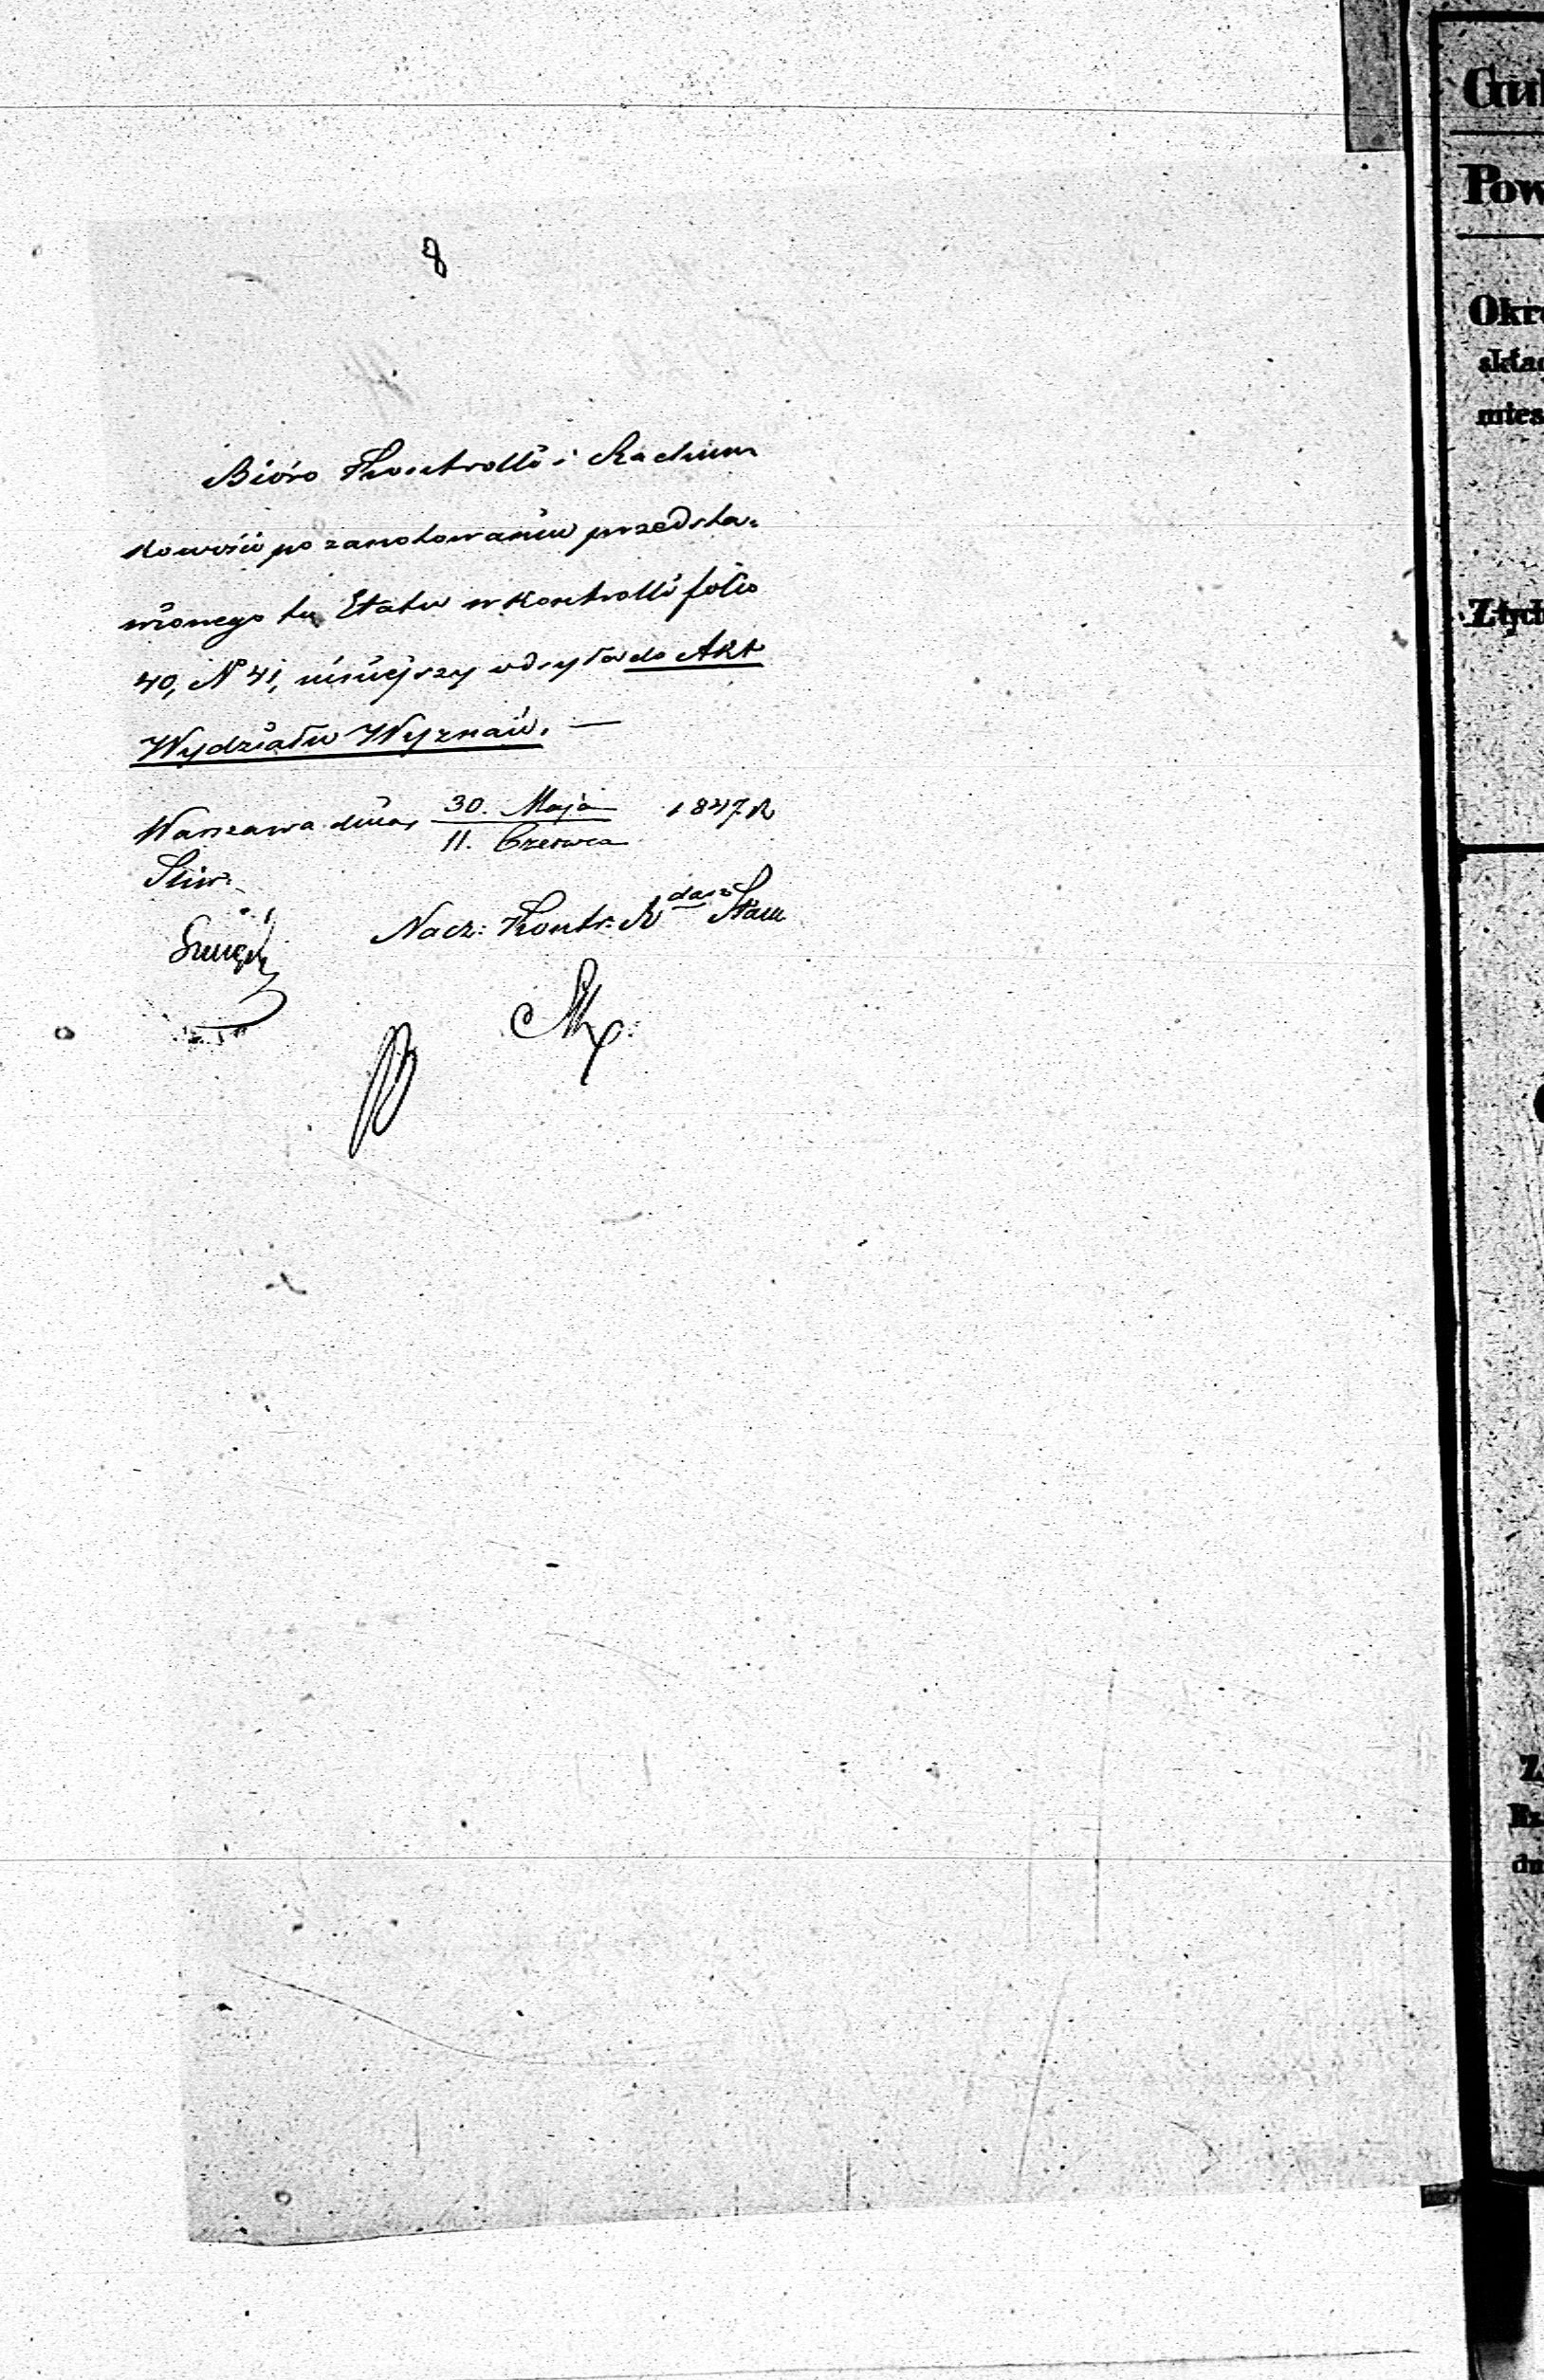 8
Bióro Kontrolli i Rachun
kowości po zanotowaniu przedsta=
wionego tu Etatu w Kontrolli folio
40, N 41, niniejszy odsyła do Akt
Wydziału Wyznań. —
Warszawa dnia 30. Maja 1847 R
11. Czerwca
Nacz: Kontr: R Stanu
Gu
Pow
Okr
skła
mies
Z tych
Z
du